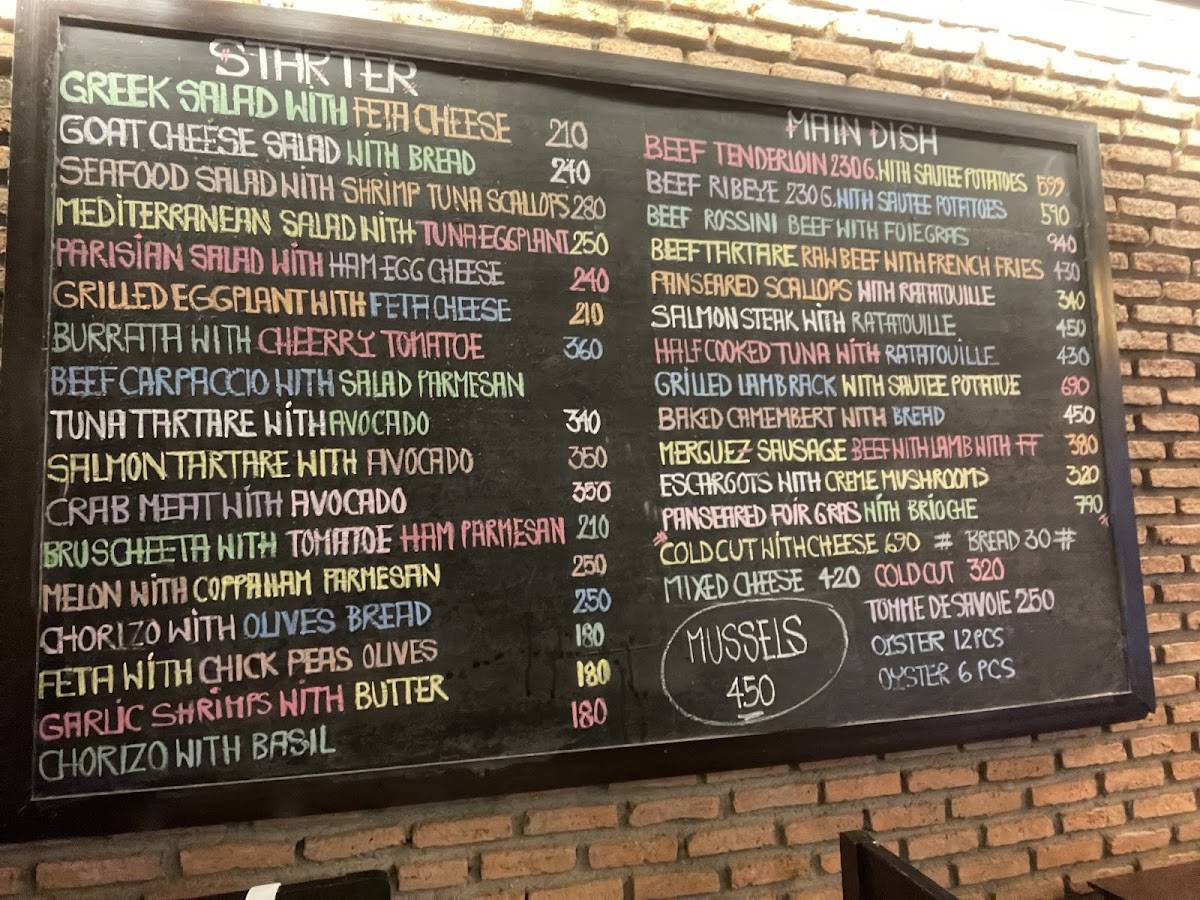 STARTER
GREEK SALAD WITH FETA CHEESE 210
GOAT CHEESE SALAD WITH BREAD 240
SEAFOOD SALAD WITH SHRIMP TUNA SCALLOPS 280
MEDITERRANEAN SALAD WITH TUNA EGGPLANT 250
PARISIAN SALAD WITH HAM EGG CHEESE 240
GRILLED EGGPLANT WITH FETA CHEESE 210
BURRATA WITH CHEERRY TOMATOE 360
BEEF CARPACCIO WITH SALAD PARMESAN
TUNA TARTARE WITH AVOCADO 340
SALMON TARTARE WITH AVOCADO 350
CRAB MEAT WITH AVOCADO 350
BRUSCHEETA WITH TOMATOE HAM PARMESAN 210
MELON WITH COPPA HAM PARMESAN 250
CHORIZO WITH OLIVES BREAD 250
FETA WITH CHICK PEAS OLIVES 180
GARLIC SHRIMPS WITH BUTTER 180
CHORIZO WITH BASIL 180
MAIN DISH
BEEF TENDERLOIN 230G. WITH SAUTEE POTATOES 599
BEEF RIBEYE 230G. WITH SAUTEE POTATOES 590
BEEF ROSSINI BEEF WITH FOIE GRAS 940
BEEF TARTARE RAW BEEF WITH FRENCH FRIES 430
PANSEARED SCALLOPS WITH RATATOUILLE 340
SALMON STEAK WITH RATATOUILLE 450
HALF COOKED TUNA WITH RATATOUILLE 430
GRILLED LAMB RACK WITH SAUTEE POTATOE 690
BAKED CAMEMBERT WITH BREAD 450
MERGUEZ SAUSAGE BEEF WITH LAMB WITH FF 380
ESCARGOTS WITH CREME MUSHROOMS 320
PANSEARED FOIR GRAS WITH BRIOCHE 790
"COLD CUT WITH CHEESE 690 # BREAD 30 # "
MIXED CHEESE 420 COLD CUT 320
TOMME DE SAVOIE 250
OISTER 12 PCS
OYSTER 6 PCS
MUSSELS
450